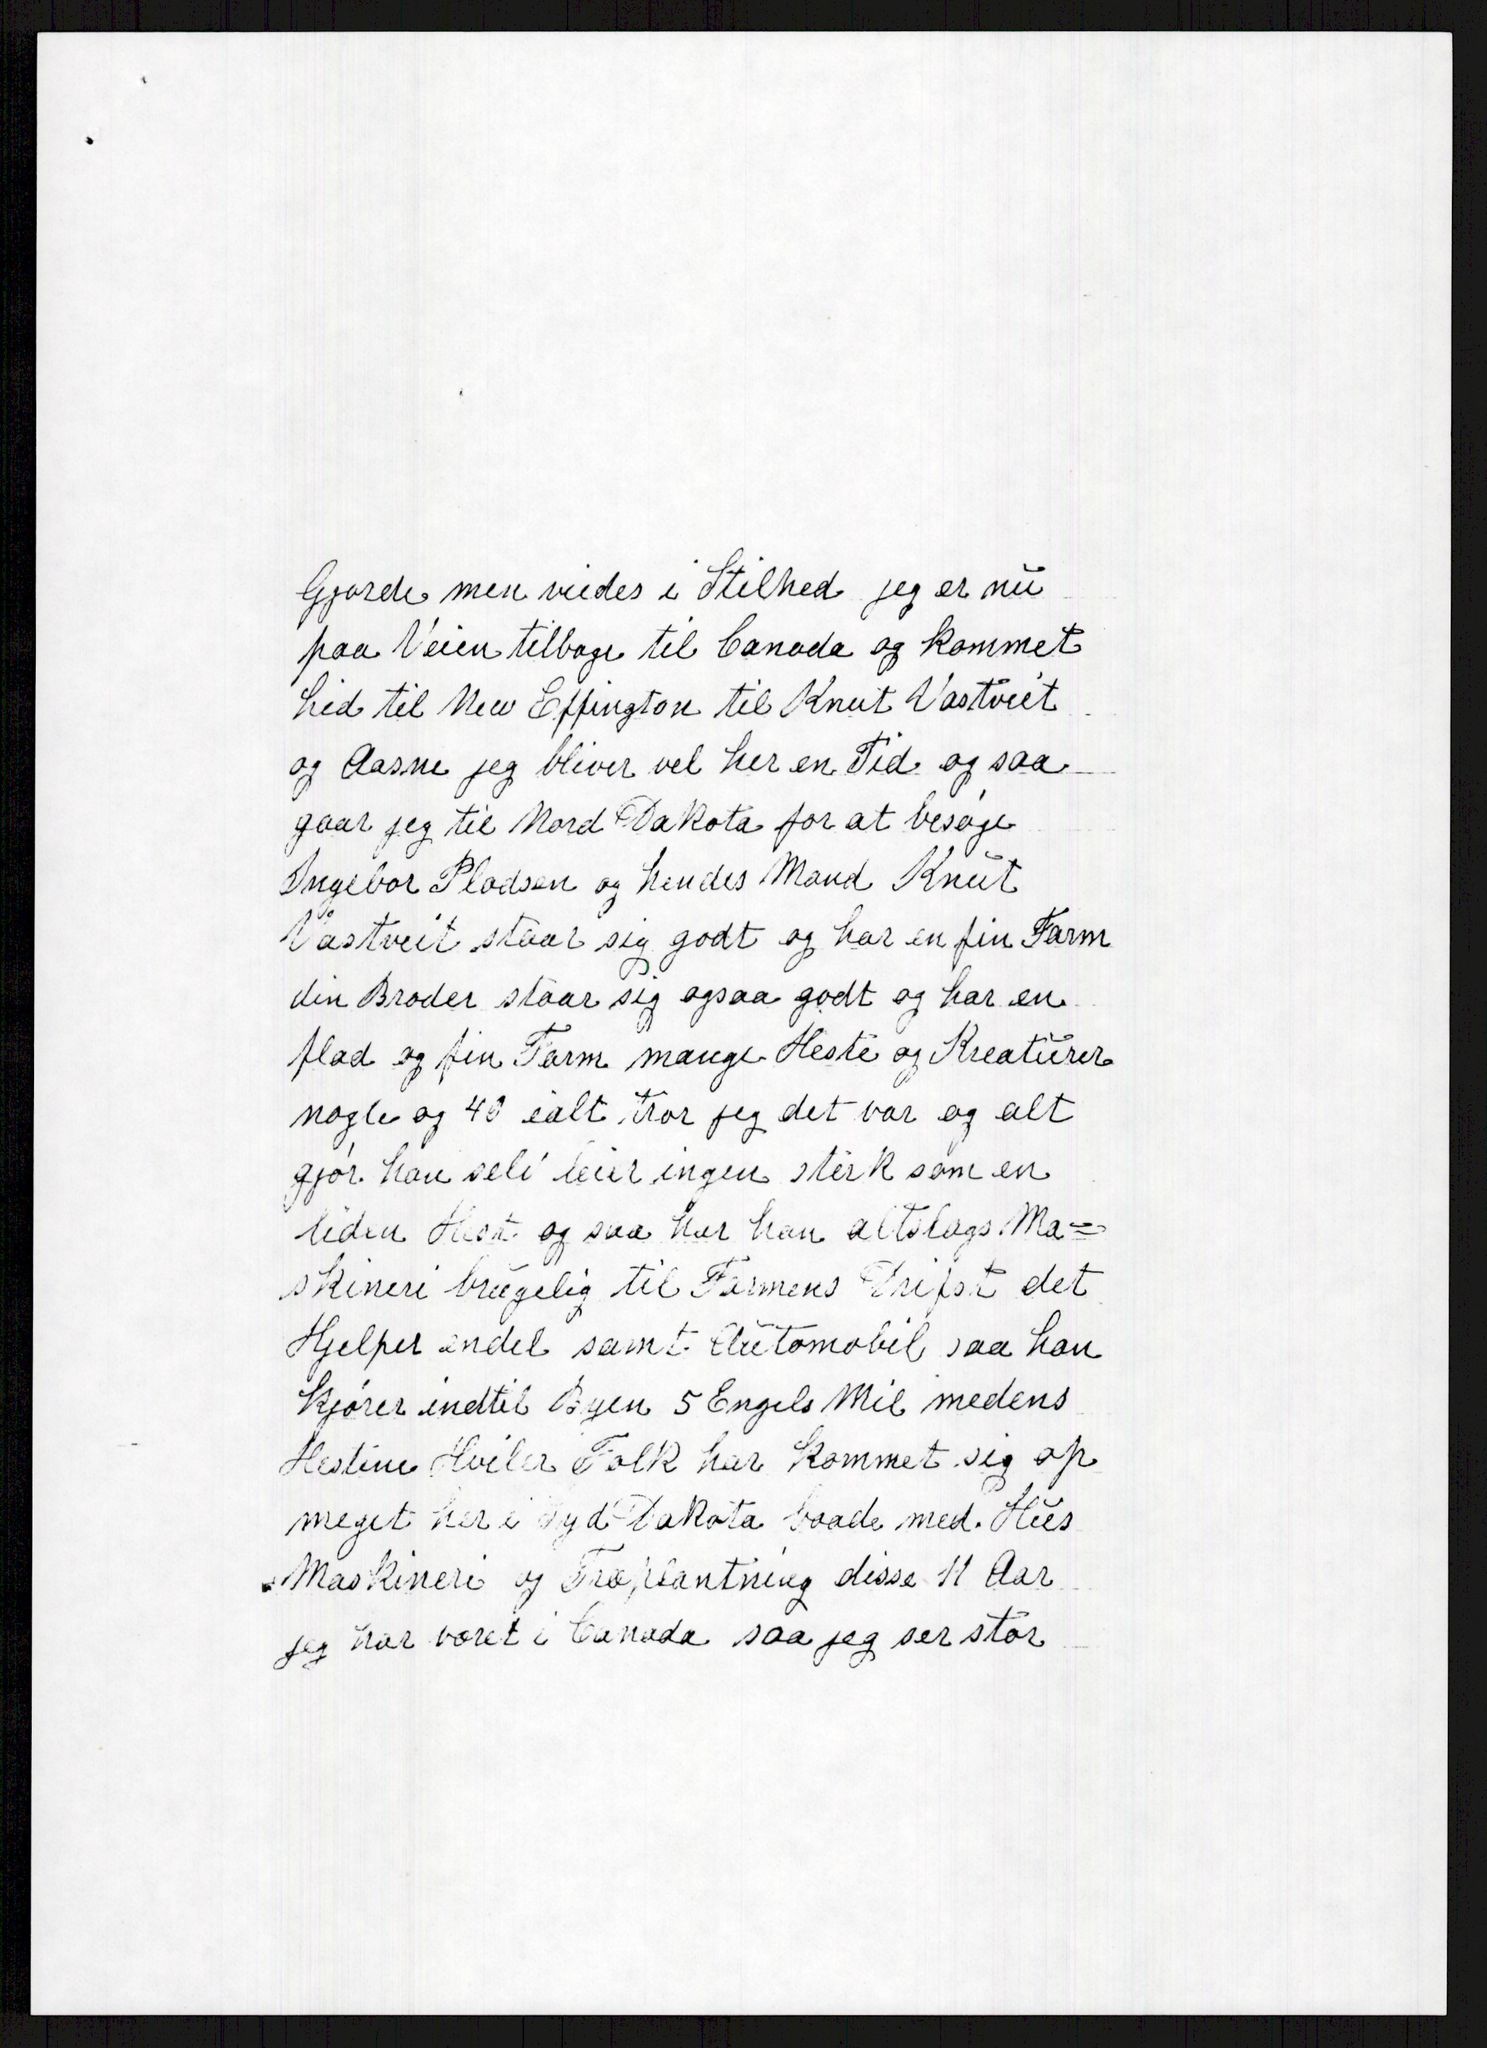 Gjorde men viedes i Stilhed jeg er nu
paa Veien tilbage til Canada og kommet
hid til New Effington til Knut Vastveit
og Aasne jeg bliver vel her en Tid og saa
gaar jeg til Nord Dakota for at besøge
Ingebor Pladsen og hendes Mand Knut
Vastveit staar sig godt og har en fin Farm
din Broder staar sig ogsaa godt og har en
flad og fin Farm mange Heste og Kreaturer
nogle og 40 ialt tror jeg det var og alt
gjør han selv leier ingen sterk som en
liden Hest og saa har han altslags Ma=
skineri brugelig til Farmens Drifst det
Hjelper endel samt Automobil saa han
Kjører indtil Byen 5 Engels Mil medens
Hestene Hviler Folk har kommet sig op
meget her i Syd Dakota baade med Hus
Maskineri og Træplantning disse 11 Aar
jeg har været i Canada saa jeg ser stor